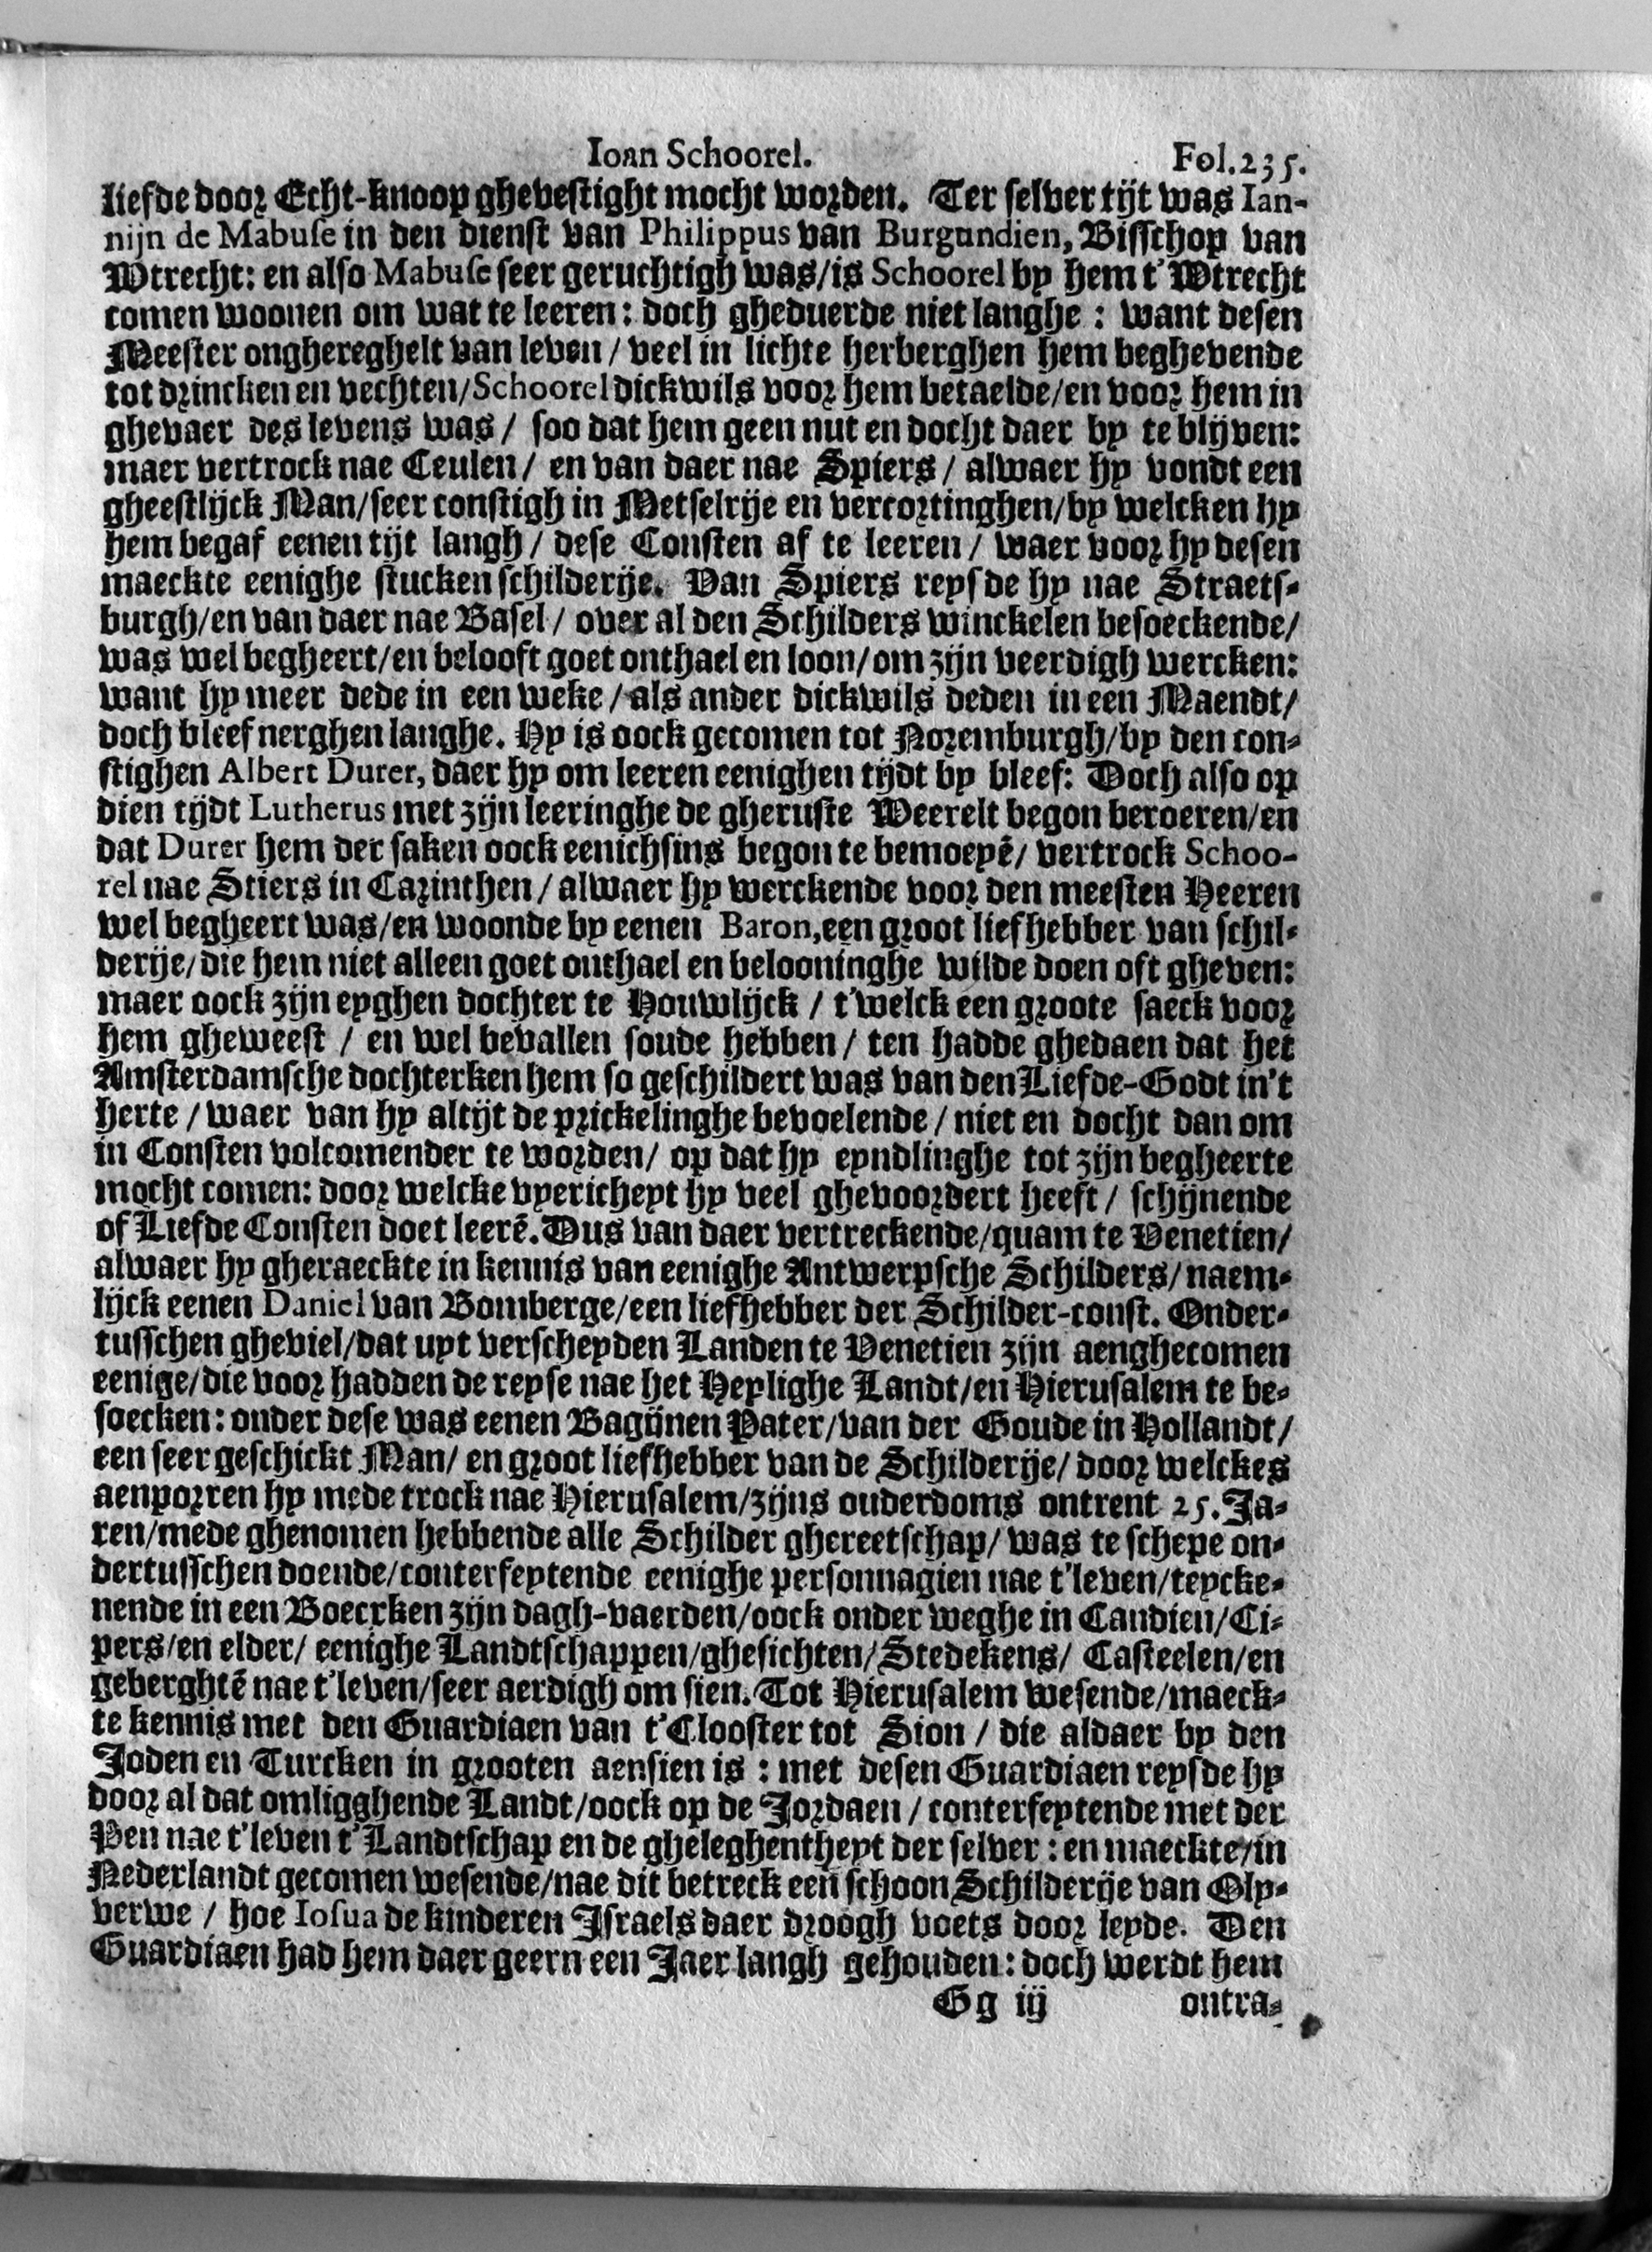 Ioan Schoorel.
Fol.235.
liefde door Echt-knoop ghevestight mocht worden. Ter selver tijt was Ian-
nijn de Mabuse in den dienst van Philippus van Burgundien, Bisschop van
Wtrecht: en also Mabuse seer geruchtigh was/is Schoorel by hem t'Wtrecht
comen woonen om wat te leeren: doch gheduerde niet langhe: want desen
Meester onghereghelt van leven/ veel in lichte herberghen hem beghevende
tot drincken en vechten/Schoorel dickwils voor hem betaelde/en voor hem in
ghevaer des levens was/ soo dat hem geen nut en docht daer by te blijven:
maer vertrock nae Ceulen/ en van daer nae Spiers/ alwaer hy vondt een
gheestlijck Man/seer constigh in Metselrije en vercortinghen/by welcken hy
hem begaf eenen tijt langh/ dese Consten af te leeren/ waer voor hy desen
maeckte eenighe stucken schilderije. Van Spiers reysde hy nae Straets-
burgh/en van daer nae Basel/ over al den Schilders winckelen besoeckende/
was wel begheert/en belooft goet onthael en loon/om zijn veerdigh wercken:
want hy meer dede in een weke/als ander dickwils deden in een Maendt/
doch bleef nerghen langhe. Hy is oock gecomen tot Noremburgh/by den con-
stighen Albert Durer, daer hy om leeren eenighen tijdt by bleef: Doch also op
dien tijdt Lutherus met zijn leeringhe de gheruste Weerelt begon beroeren/en
dat Durer hem der saken oock eenichsins begon te bemoeyē/ vertrock Schoo-
rel nae Stiers in Carinthen/ alwaer hy werckende voor den meesten Heeren
wel begheert was/en woonde by eenen Baron,een groot liefhebber van schil-
derije/die hem niet alleen goet onthael en belooninghe wilde doen oft gheven:
maer oock zijn eyghen dochter te Houwlijck/ t'welck een groote saeck voor
hem gheweest/ en wel bevallen soude hebben/ ten hadde ghedaen dat het
Amsterdamsche dochterken hem so geschildert was van den Liefde-Godt in't
herte/waer van hy altijt de prickelinghe bevoelende/ niet en docht dan om
in Consten volcomender te worden/ op dat hy eyndlinghe tot zijn begheerte
mocht comen: door welcke vyericheyt hy veel ghevoordert heeft/ schijnende
of Liefde Consten doet leerē. Dus van daer vertreckende/quam te Venetien/
alwaer hy gheraeckte in kennis van eenighe Antwerpsche Schilders/naem-
lijck eenen Daniel van Bomberge/een liefhebber der Schilder-const. Onder-
tusschen gheviel/dat uyt verscheyden Landen te Venetien zijn aenghecomen
eenige/die voor hadden de reyse nae het Heylighe Landt/en Hierusalem te be-
soecken: onder dese was eenen Bagijnen Pater/van der Goude in Hollandt/
een seer geschickt Man/ en groot liefhebber van de Schilderije/ door welckes
aenporren hy mede trock nae Hierusalem/zijns ouderdoms ontrent 25. Ja-
ren/mede ghenomen hebbende alle Schilder ghereetschap/ was te schepe on-
dertusschen doende/conterfeytende eenighe personnagien nae t'leven/teycke-
nende in een Boecxken zijn dagh-vaerden/oock onder weghe in Candien/Ci-
pers/en elder/ eenighe Landtschappen/ghesichten/Stedekens/ Casteelen/en
geberghtē nae t'leven/seer aerdigh om sien. Tot Hierusalem wesende/maeck-
te kennis met den Guardiaen van t'Clooster tot Sion/ die aldaer by den
Joden en Turcken in grooten aensien is: met desen Guardiaen reysde hy
door al dat omligghende Landt/oock op de Jordaen/ conterfeytende met der
Pen nae t'leven t'Landtschap en de gheleghentheyt der selver: en maeckte/in
Nederlandt gecomen wesende/nae dit betreck een schoon Schilderije van Oly-
verwe/ hoe Iosua de kinderen Israels daer droogh voets door leyde. Den
Guardiaen had hem daer geern een Jaer langh gehouden: doch werdt hem
Gg iij
ontra-